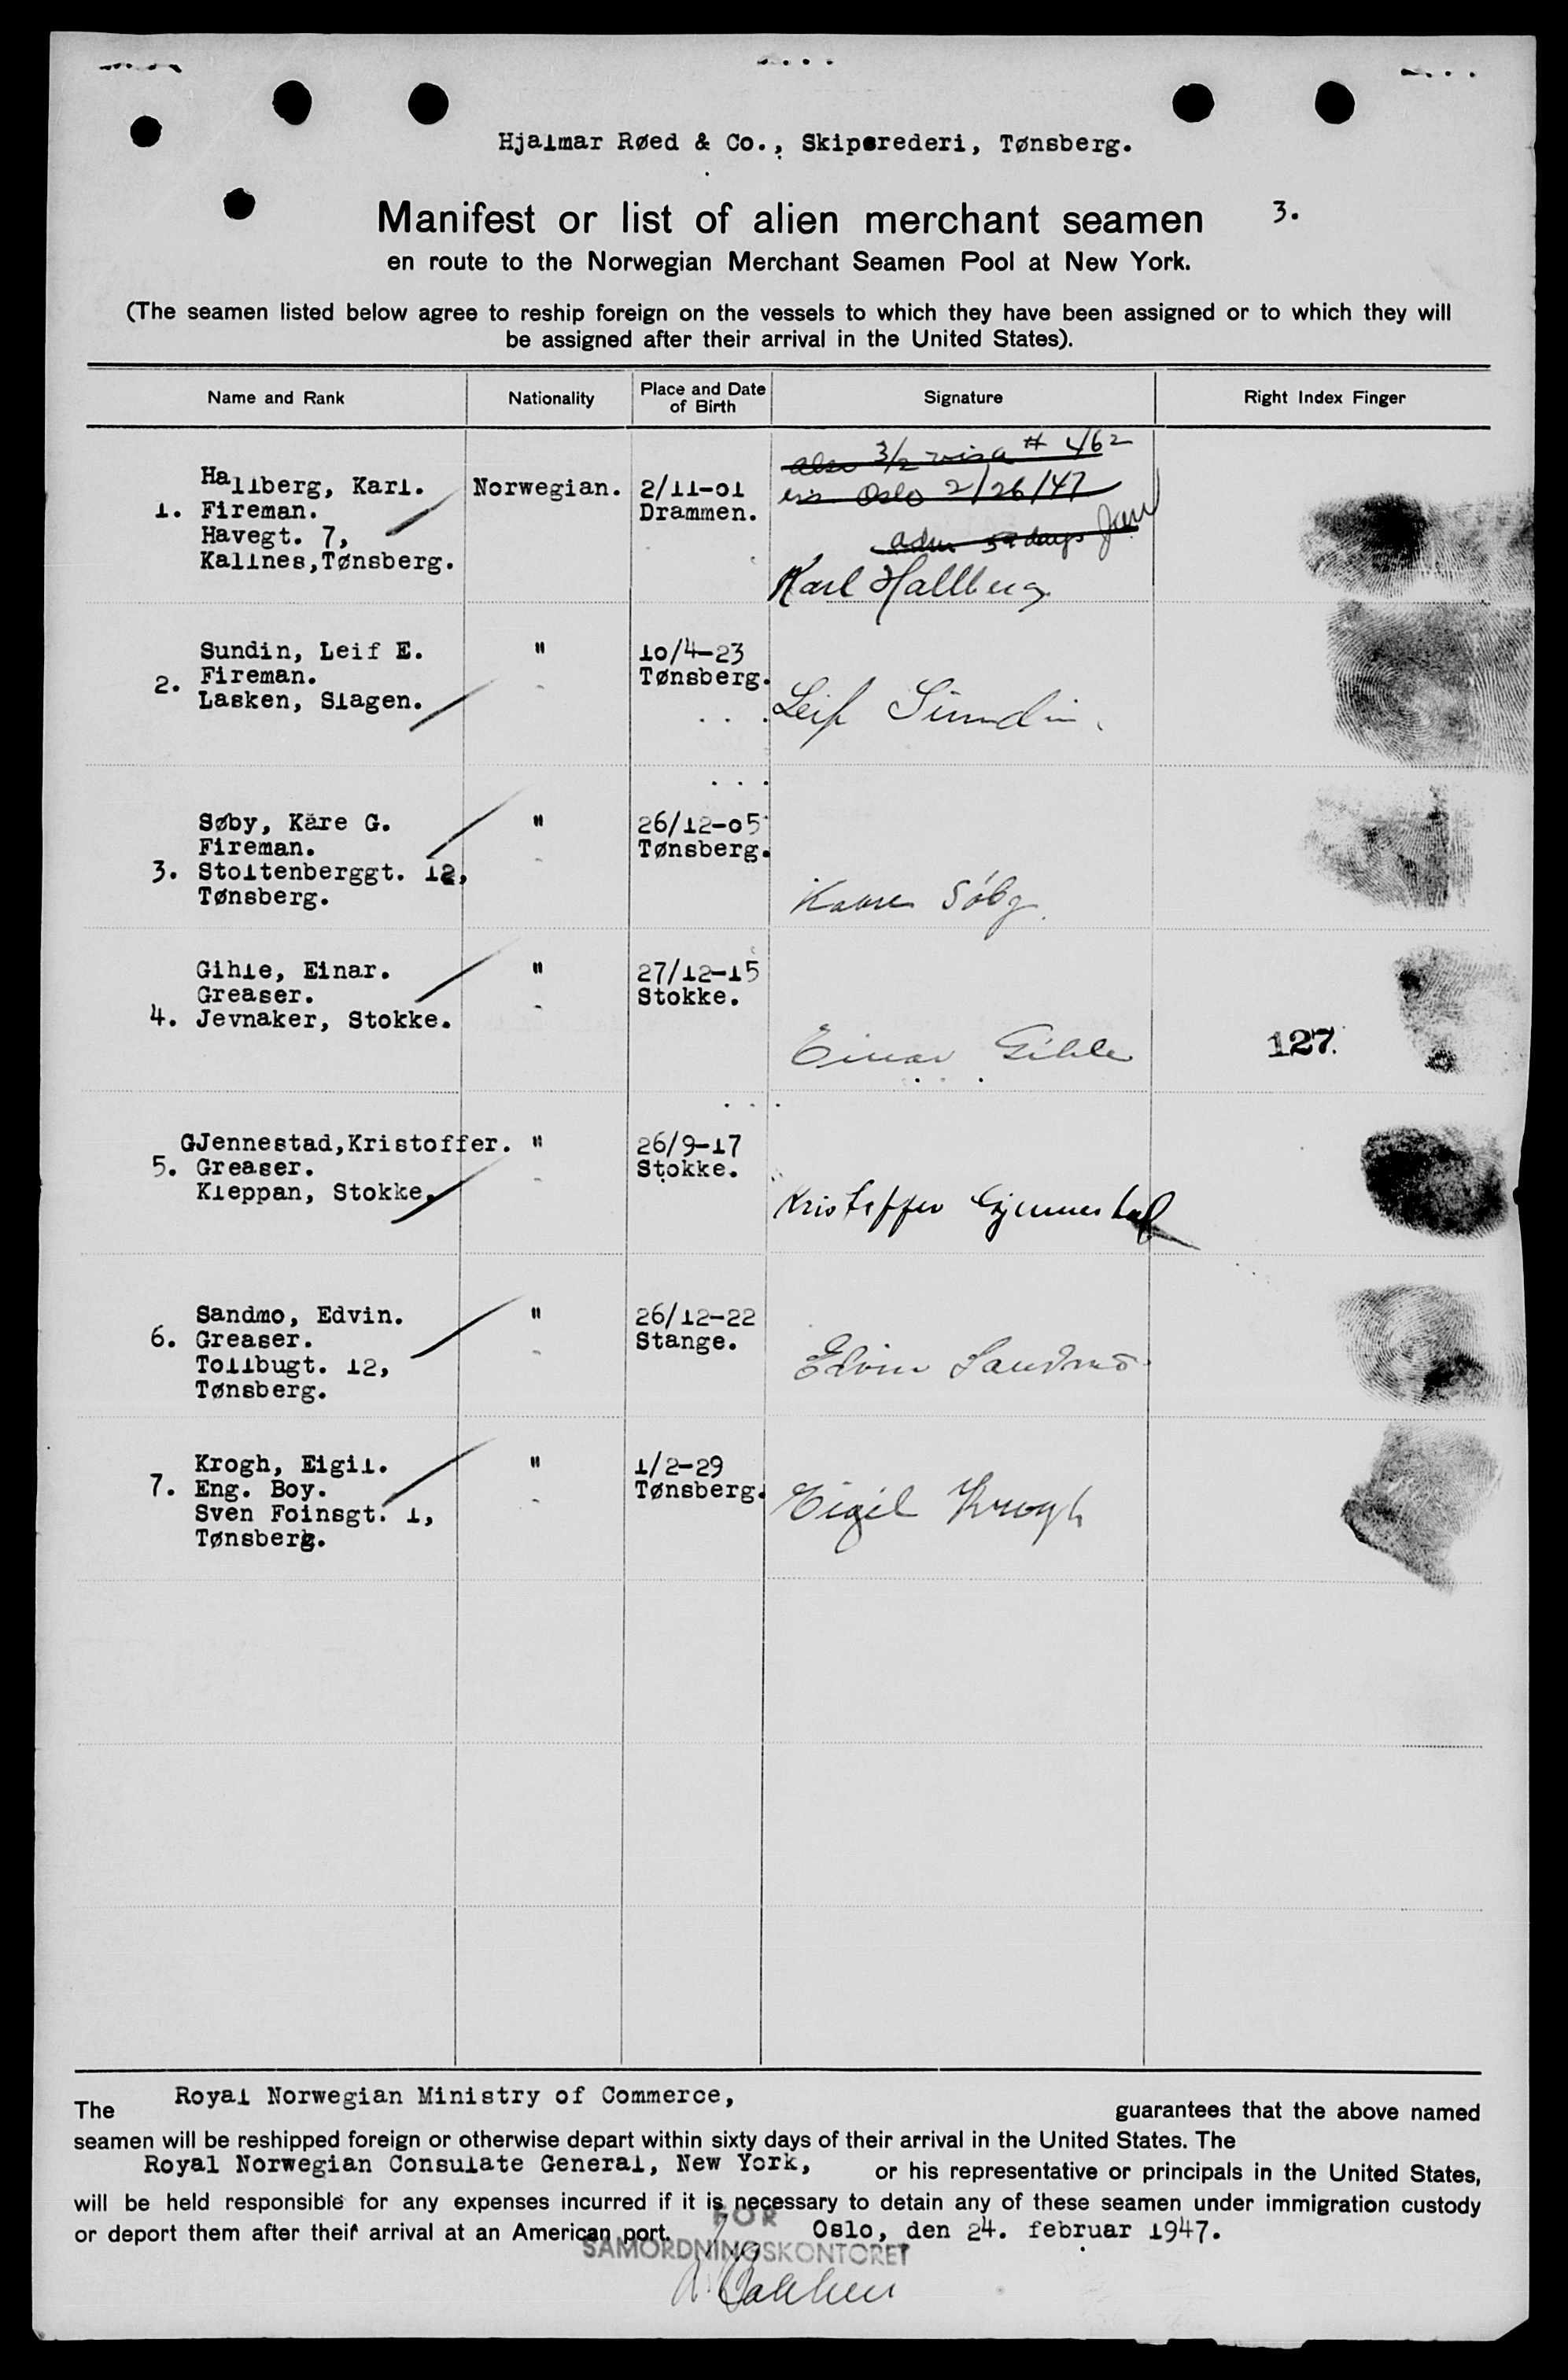 Hjalmar Røed & Co., Skipsrederi, Tønsberg.
Manifest or list of alien merchant seamen 3.
en route to the Norwegian Merchant Seamen Pool at New York.
(The seamen listed below agree to reship foreign on the vessels to which they have been assigned or to which they will
be assigned after their arrival in the United States).
Name and Rank
Nationality
Place and Date
of Birth
Signature
Right Index Finger
1.
Hallberg, Karl.
Fireman.
Havegt. 7,
Kallnes,Tønsberg.
Norwegian.
2/11-01
Drammen.
3/2 visa # 462
iss Oslo 2/26/47
adm days
Karl Hallberg
2.
Sundin, Leif E.
Fireman.
Lasken, Slagen.
"
10/4-23
Tønsberg.
Leif Sundin
3.
Søby, Kåre G.
Fireman.
Stoltenberggt. 12,
Tønsberg.
"
26/12-05
Tønsberg.
Kaare Söby
4.
Gihle, Einar.
Greaser.
Jevnaker, Stokke.
"
27/12-15
Stokke.
Einar Gihle
127.
5.
GJennestad,Kristoffer.
Greaser.
Kleppan, Stokke.
"
26/9-17
Stokke.
Kristoffer Gjennestad
6.
Sandmo, Edvin.
Greaser.
Tollbugt. 12,
Tønsberg.
"
26/12-22
Stange.
Edvin Sandmo
7.
Krogh, Eigil.
Eng. Boy.
Sven Foinsgt. 1,
Tønsberg.
"
1/2-29
Tønsberg.
Eigil Krogh
The Royal Norwegian Ministry of Commerce, guarantees that the above named
seamen will be reshipped foreign or otherwise depart within sixty days of their arrival in the United States. The
Royal Norwegian Consulate General, New York, or his representative or principals in the United States,
will be held responsible for any expenses incurred if it is necessary to detain any of these seamen under immigration custody
or deport them after their arrival at an American port. Oslo, den 24. februar 1947.
FOR
SAMORDNINGSKONTORET